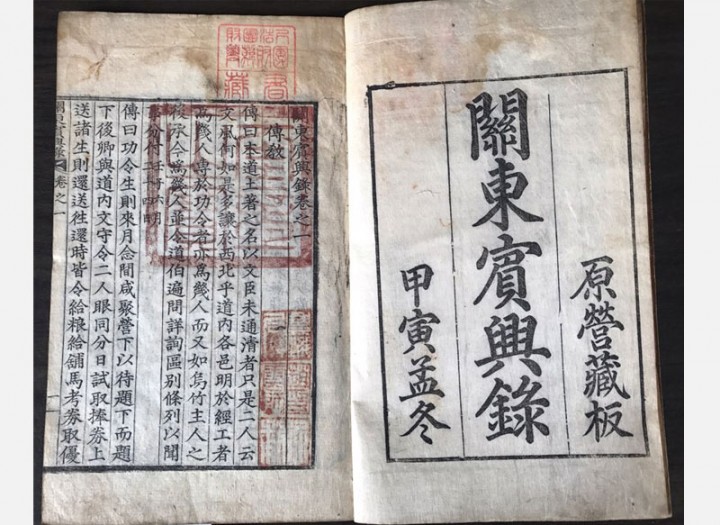 原營藏板
關東賓興錄
甲寅孟冬
關東賓興錄卷之一
傳教
傳曰本道土著之名以文臣未通清者只是二人云
文風何如是多讓於西北乎道內各邑明於經工者
爲幾人專於功令者亦爲幾人而又如烏竹主人之
後承合爲幾人並令道伯遍問詳詢區別條列以聞
事分付
傳曰功令生則來月念間咸聚營下以待題下而題
下後卿與道內文守令二人眼同分日試取捧券上
送諸生則還送往還時皆令給粮給舖馬考券取優
關東賓興錄 卷之一 一